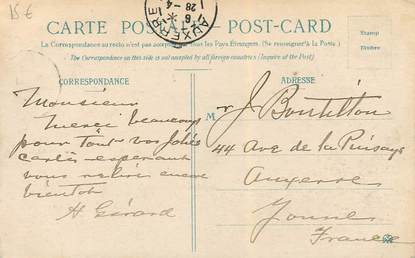 15 €
CARTE POSTALE - POST-CARD
La Correspondance au recto n'est pas acceptée par tous les Pays Étrangers. (Se renseigner à la Poste)
The Correspondence on this side is not accepted by all foreign countries (Inquire at the Post)
Stamp
Timbre
AUXERRE
6
28 - 4
CORRESPONDANCE
Monsieur
Merci beaucoup
pour tout vos jolies
cartes espérant
vous relire encore
bientôt
H Gérard
ADRESSE
M r J. Boutillon
44 Ave de la Puisaye
Auxerre
Yonne
France